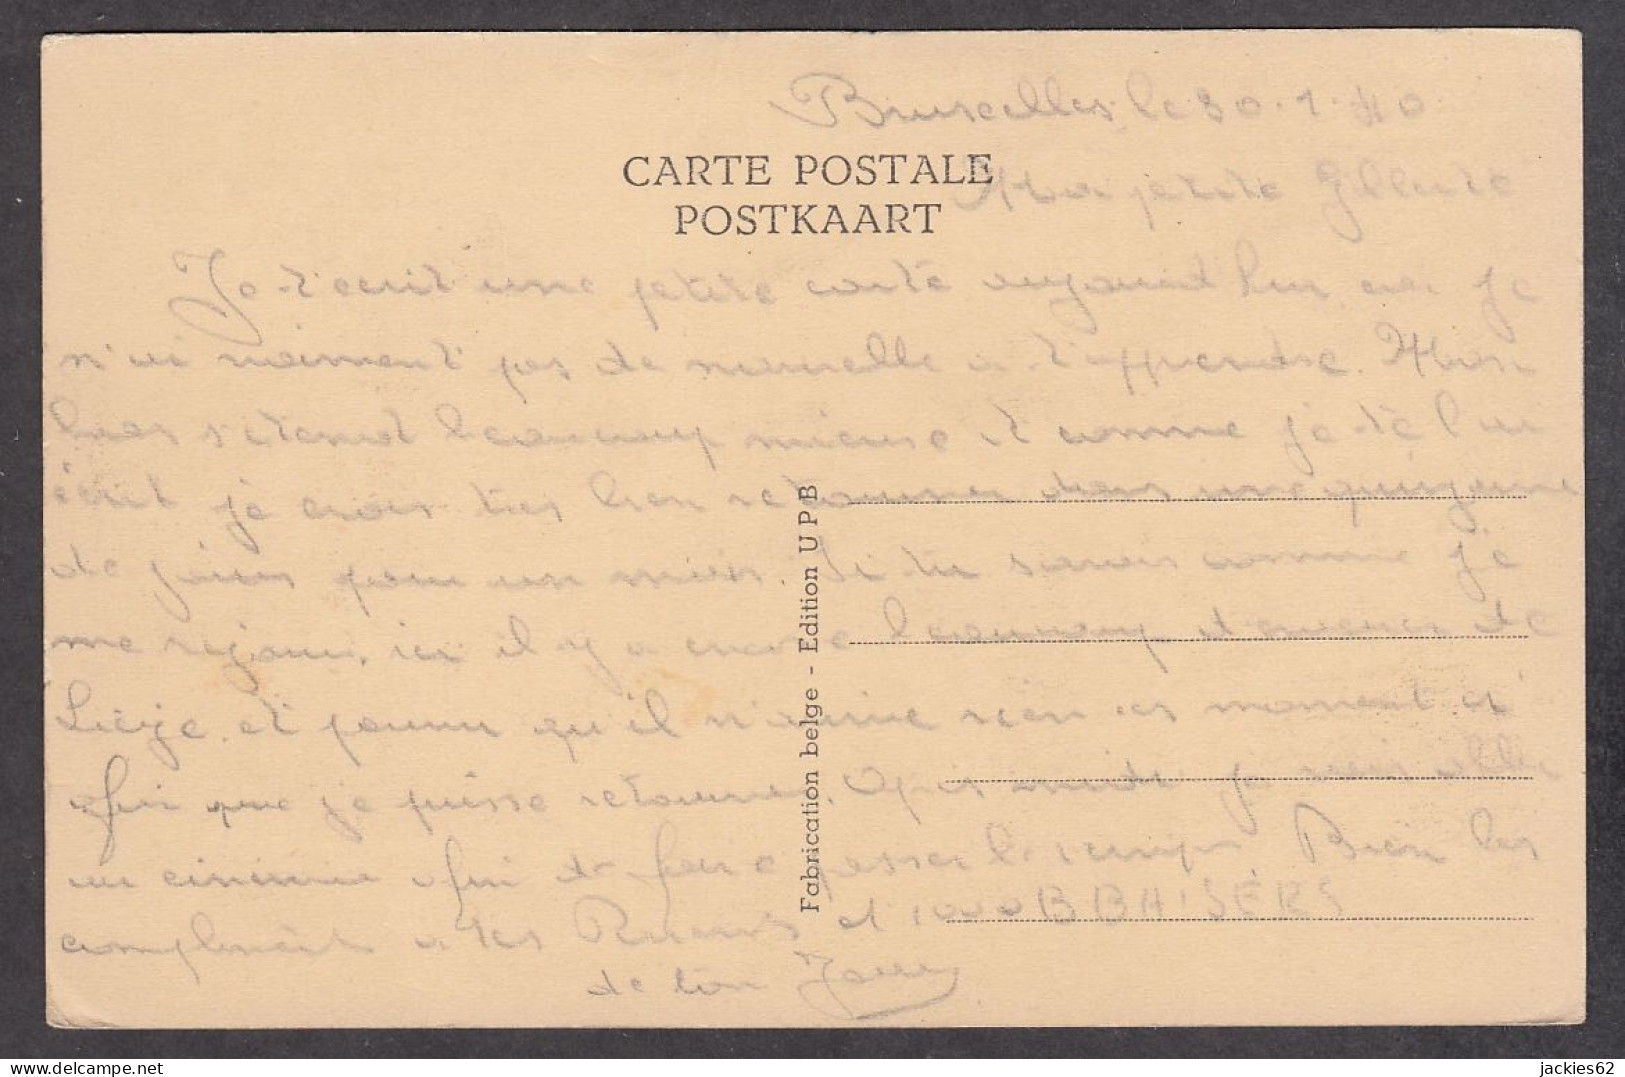 Bruxelles, le 30.1.40.
CARTE POSTALE
POSTKAART
Ma petite
Je t'ecrit une petite carte aujourd'hui car je
n'ai vraiment pas de nouvelle a t'apprendre. Mon
bras s'etend beaucoup mieux et comme je te l'ai
écrit je crois très bien retourner dans une quinzaine
de jours pour un mois. Si tu savais comme je
me rejoui, ici il y a encore beaucoup d'
de
Liège et pourvu qu'il n'arrive rien ces moment ci
afin que je puisse retourner. Après midi je vais aller
au cinema afin de faire passer le temps. Bien les
compliment a tes Parents et 1000 BBAISERS
de ton
Fabrication belge - Edition U P B
jackies62
delcampe.net